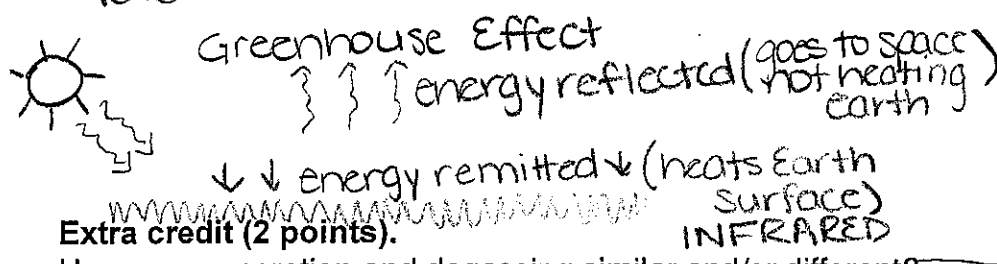 Greenhouse Effect
energy reflected (goes to space
not heating
earth)
energy remitted (heats Earth
surface)
INFRARED
Extra credit (2 points).